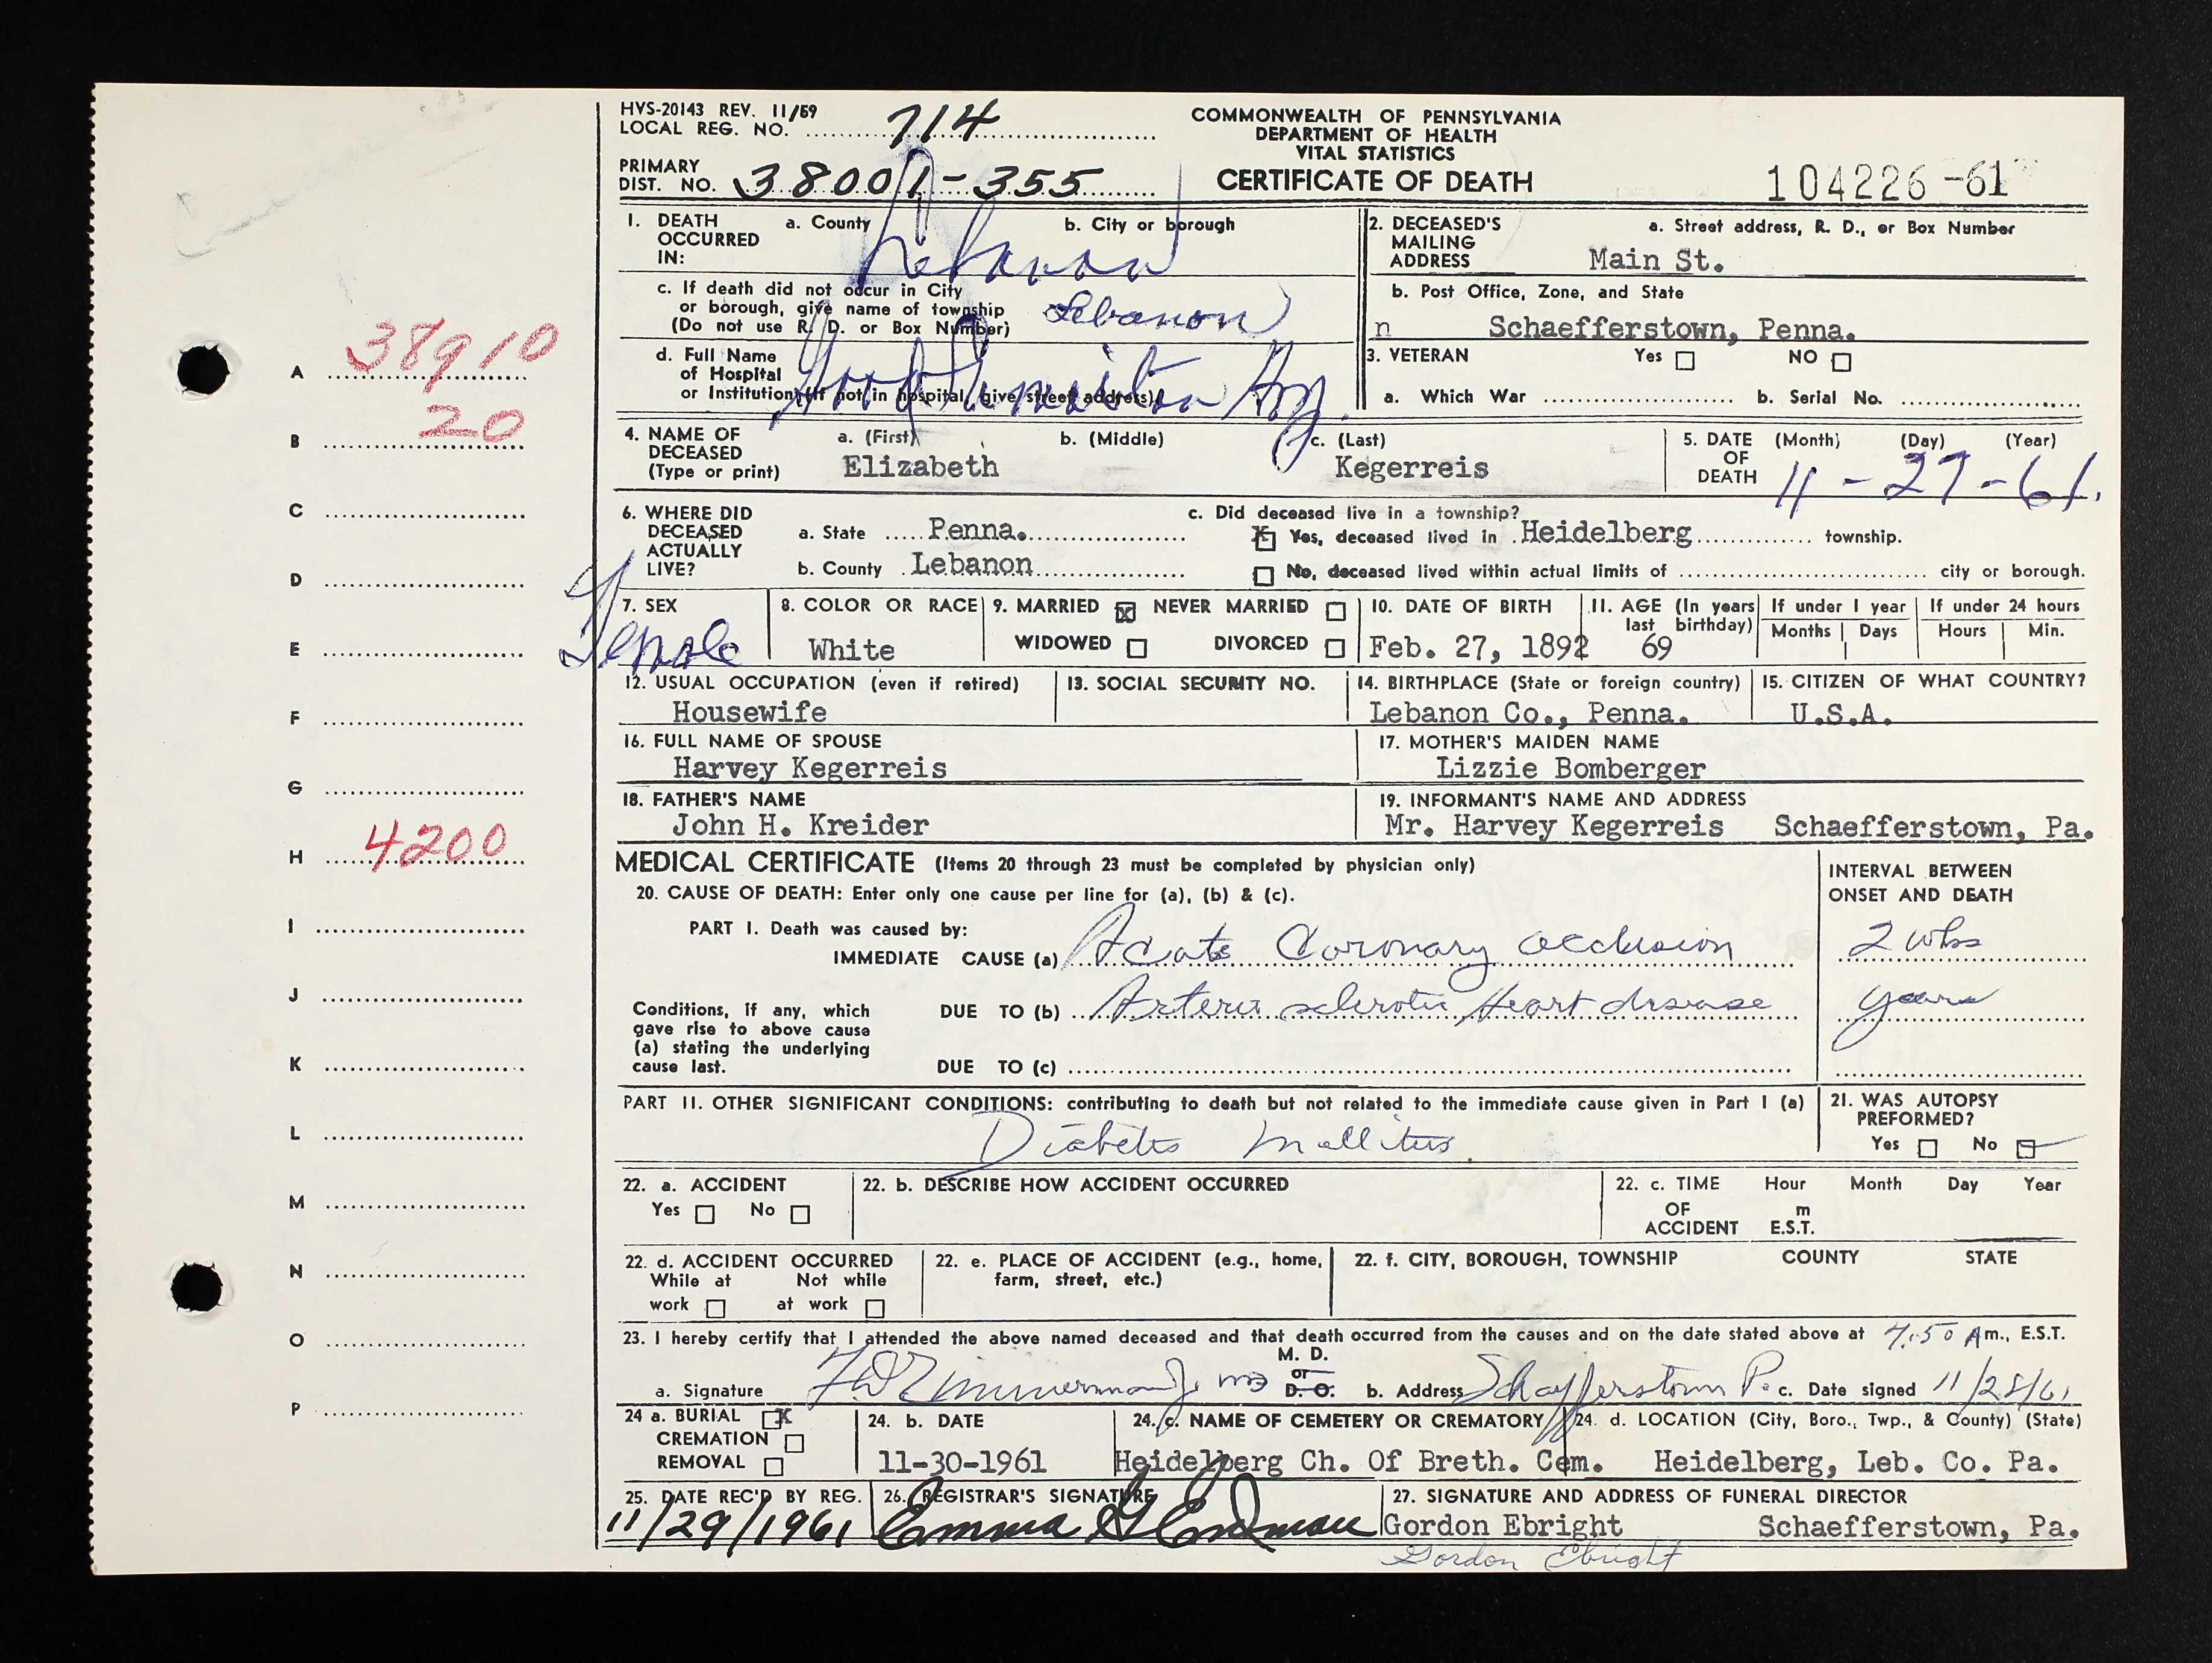 HVS-20143 REV. 11/59
LOCAL REG. NO. 714
COMMONWEALTH OF PENNSYLVANIA
DEPARTMENT OF HEALTH
VITAL STATISTICS
CERTIFICATE OF DEATH
PRIMARY
DIST. NO. 38001-355
104226-61
1. DEATH OCCURRED IN: a. County b. City or borough
Lebanon
c. If death did not occur in City
or borough, give name of township
(Do not use R. D. or Box Number)
Lebanon
d. Full Name
of Hospital
or Institution (If not in hospital, give street address)
Good Samaritan Hosp.
2. DECEASED'S MAILING ADDRESS
a. Street address, R. D., or Box Number
Main St.
b. Post Office, Zone, and State
n Schaefferstown, Penna.
3. VETERAN Yes NO
a. Which War b. Serial No.
4. NAME OF DECEASED (Type or print)
a. (First) b. (Middle) c. (Last)
Elizabeth Kegerreis
5. DATE OF DEATH (Month) (Day) (Year)
11-27-61.
6. WHERE DID DECEASED ACTUALLY LIVE?
a. State Penna.
b. County Lebanon
c. Did deceased live in a township?
X Yes, deceased lived in Heidelberg township.
No, deceased lived within actual limits of city or borough.
7. SEX
Female
8. COLOR OR RACE
White
9. MARRIED X NEVER MARRIED
WIDOWED DIVORCED
10. DATE OF BIRTH
Feb. 27, 1892
11. AGE (In years last birthday)
69
If under 1 year
Months Days
If under 24 hours
Hours Min.
12. USUAL OCCUPATION (even if retired)
Housewife
13. SOCIAL SECURITY NO.
14. BIRTHPLACE (State or foreign country)
Lebanon Co., Penna.
15. CITIZEN OF WHAT COUNTRY?
U.S.A.
16. FULL NAME OF SPOUSE
Harvey Kegerreis
17. MOTHER'S MAIDEN NAME
Lizzie Bomberger
18. FATHER'S NAME
John H. Kreider
19. INFORMANT'S NAME AND ADDRESS
Mr. Harvey Kegerreis Schaefferstown, Pa.
MEDICAL CERTIFICATE (Items 20 through 23 must be completed by physician only)
INTERVAL BETWEEN
ONSET AND DEATH
20. CAUSE OF DEATH: Enter only one cause per line for (a), (b) & (c).
PART I. Death was caused by:
IMMEDIATE CAUSE (a) Acute Coronary occlusion 2 wks
Conditions, if any, which
gave rise to above cause
(a) stating the underlying
cause last.
DUE TO (b) Arterio sclerotic Heart disease years
DUE TO (c)
PART II. OTHER SIGNIFICANT CONDITIONS: contributing to death but not related to the immediate cause given in Part I (a)
Diabetes Mellitus.
21. WAS AUTOPSY
PREFORMED?
Yes No
22. a. ACCIDENT
Yes No
22. b. DESCRIBE HOW ACCIDENT OCCURRED
22. c. TIME Hour Month Day Year
OF m
ACCIDENT E.S.T.
22. d. ACCIDENT OCCURRED
While at Not while
work at work
22. e. PLACE OF ACCIDENT (e.g., home,
farm, street, etc.)
22. f. CITY, BOROUGH, TOWNSHIP COUNTY STATE
23. I hereby certify that I attended the above named deceased and that death occurred from the causes and on the date stated above at 7:50 A m., E.S.T.
a. Signature Zimmerman Jr MD M. D. or D. O. b. Address Schaefferstown Pa c. Date signed 11/28/61
24 a. BURIAL X
CREMATION
REMOVAL
24. b. DATE
11-30-1961
24. c. NAME OF CEMETERY OR CREMATORY
Heidelberg Ch. Of Breth. Cem.
24. d. LOCATION (City, Boro., Twp., & County) (State)
Heidelberg, Leb. Co. Pa.
25. DATE REC'D BY REG.
11/29/1961
26. REGISTRAR'S SIGNATURE
Emma G Erdman
27. SIGNATURE AND ADDRESS OF FUNERAL DIRECTOR
Gordon Ebright Schaefferstown, Pa.
Gordon Ebright
A 38910
B 20
C
D
E
F
G
H 4200
I
J
K
L
M
N
O
P